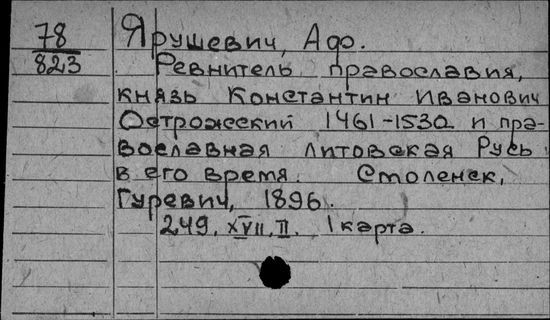 78
823
Ярушевич, Адо.
Ревнитель православия,
князь Константин Иванович
Острожский 1461-1530 и пра-
вославная литовская Русь
в его время. Смоленск,
Гуревич, 1896.
249, XVII, II. 1 карта.